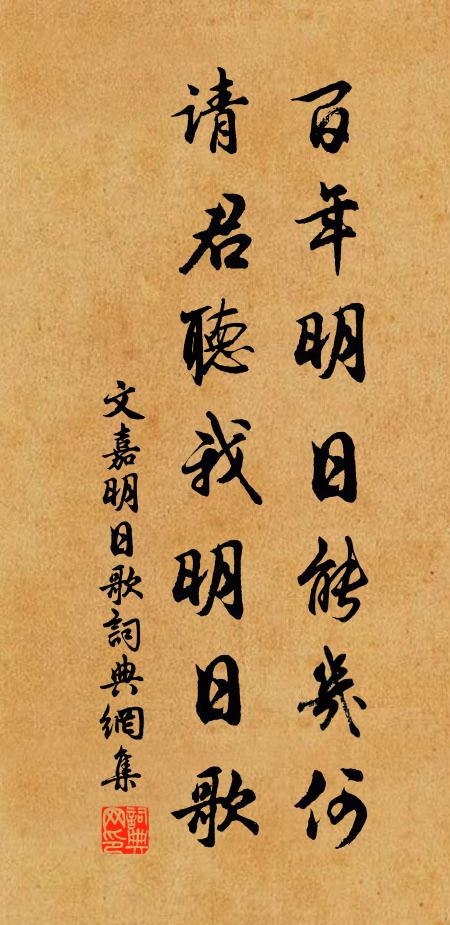 百年明日能幾何
请君聽我明日歌
文嘉明日歌詞典網集
詞典网印